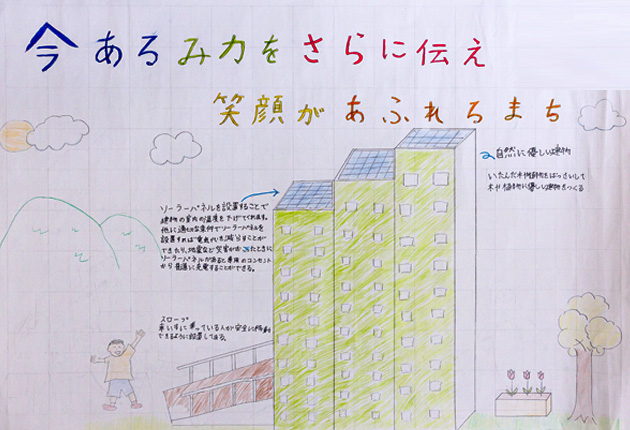 今あるみ力をさらに伝え
笑顔があふれるまち
自然に優しい建物
ソーラーパネルを設置することで
建物の室内の温度を下げてくれます。
他に適した条件でソーラーパネルを
設置すれば電気代を減らすことが
できたり、地震など災害がおきたときに
ソーラーパネルがあると専用のコンセント
から普通に充電することができる。
スロープ
車いすに乗っている人が安全に移動
できるように設置してある。